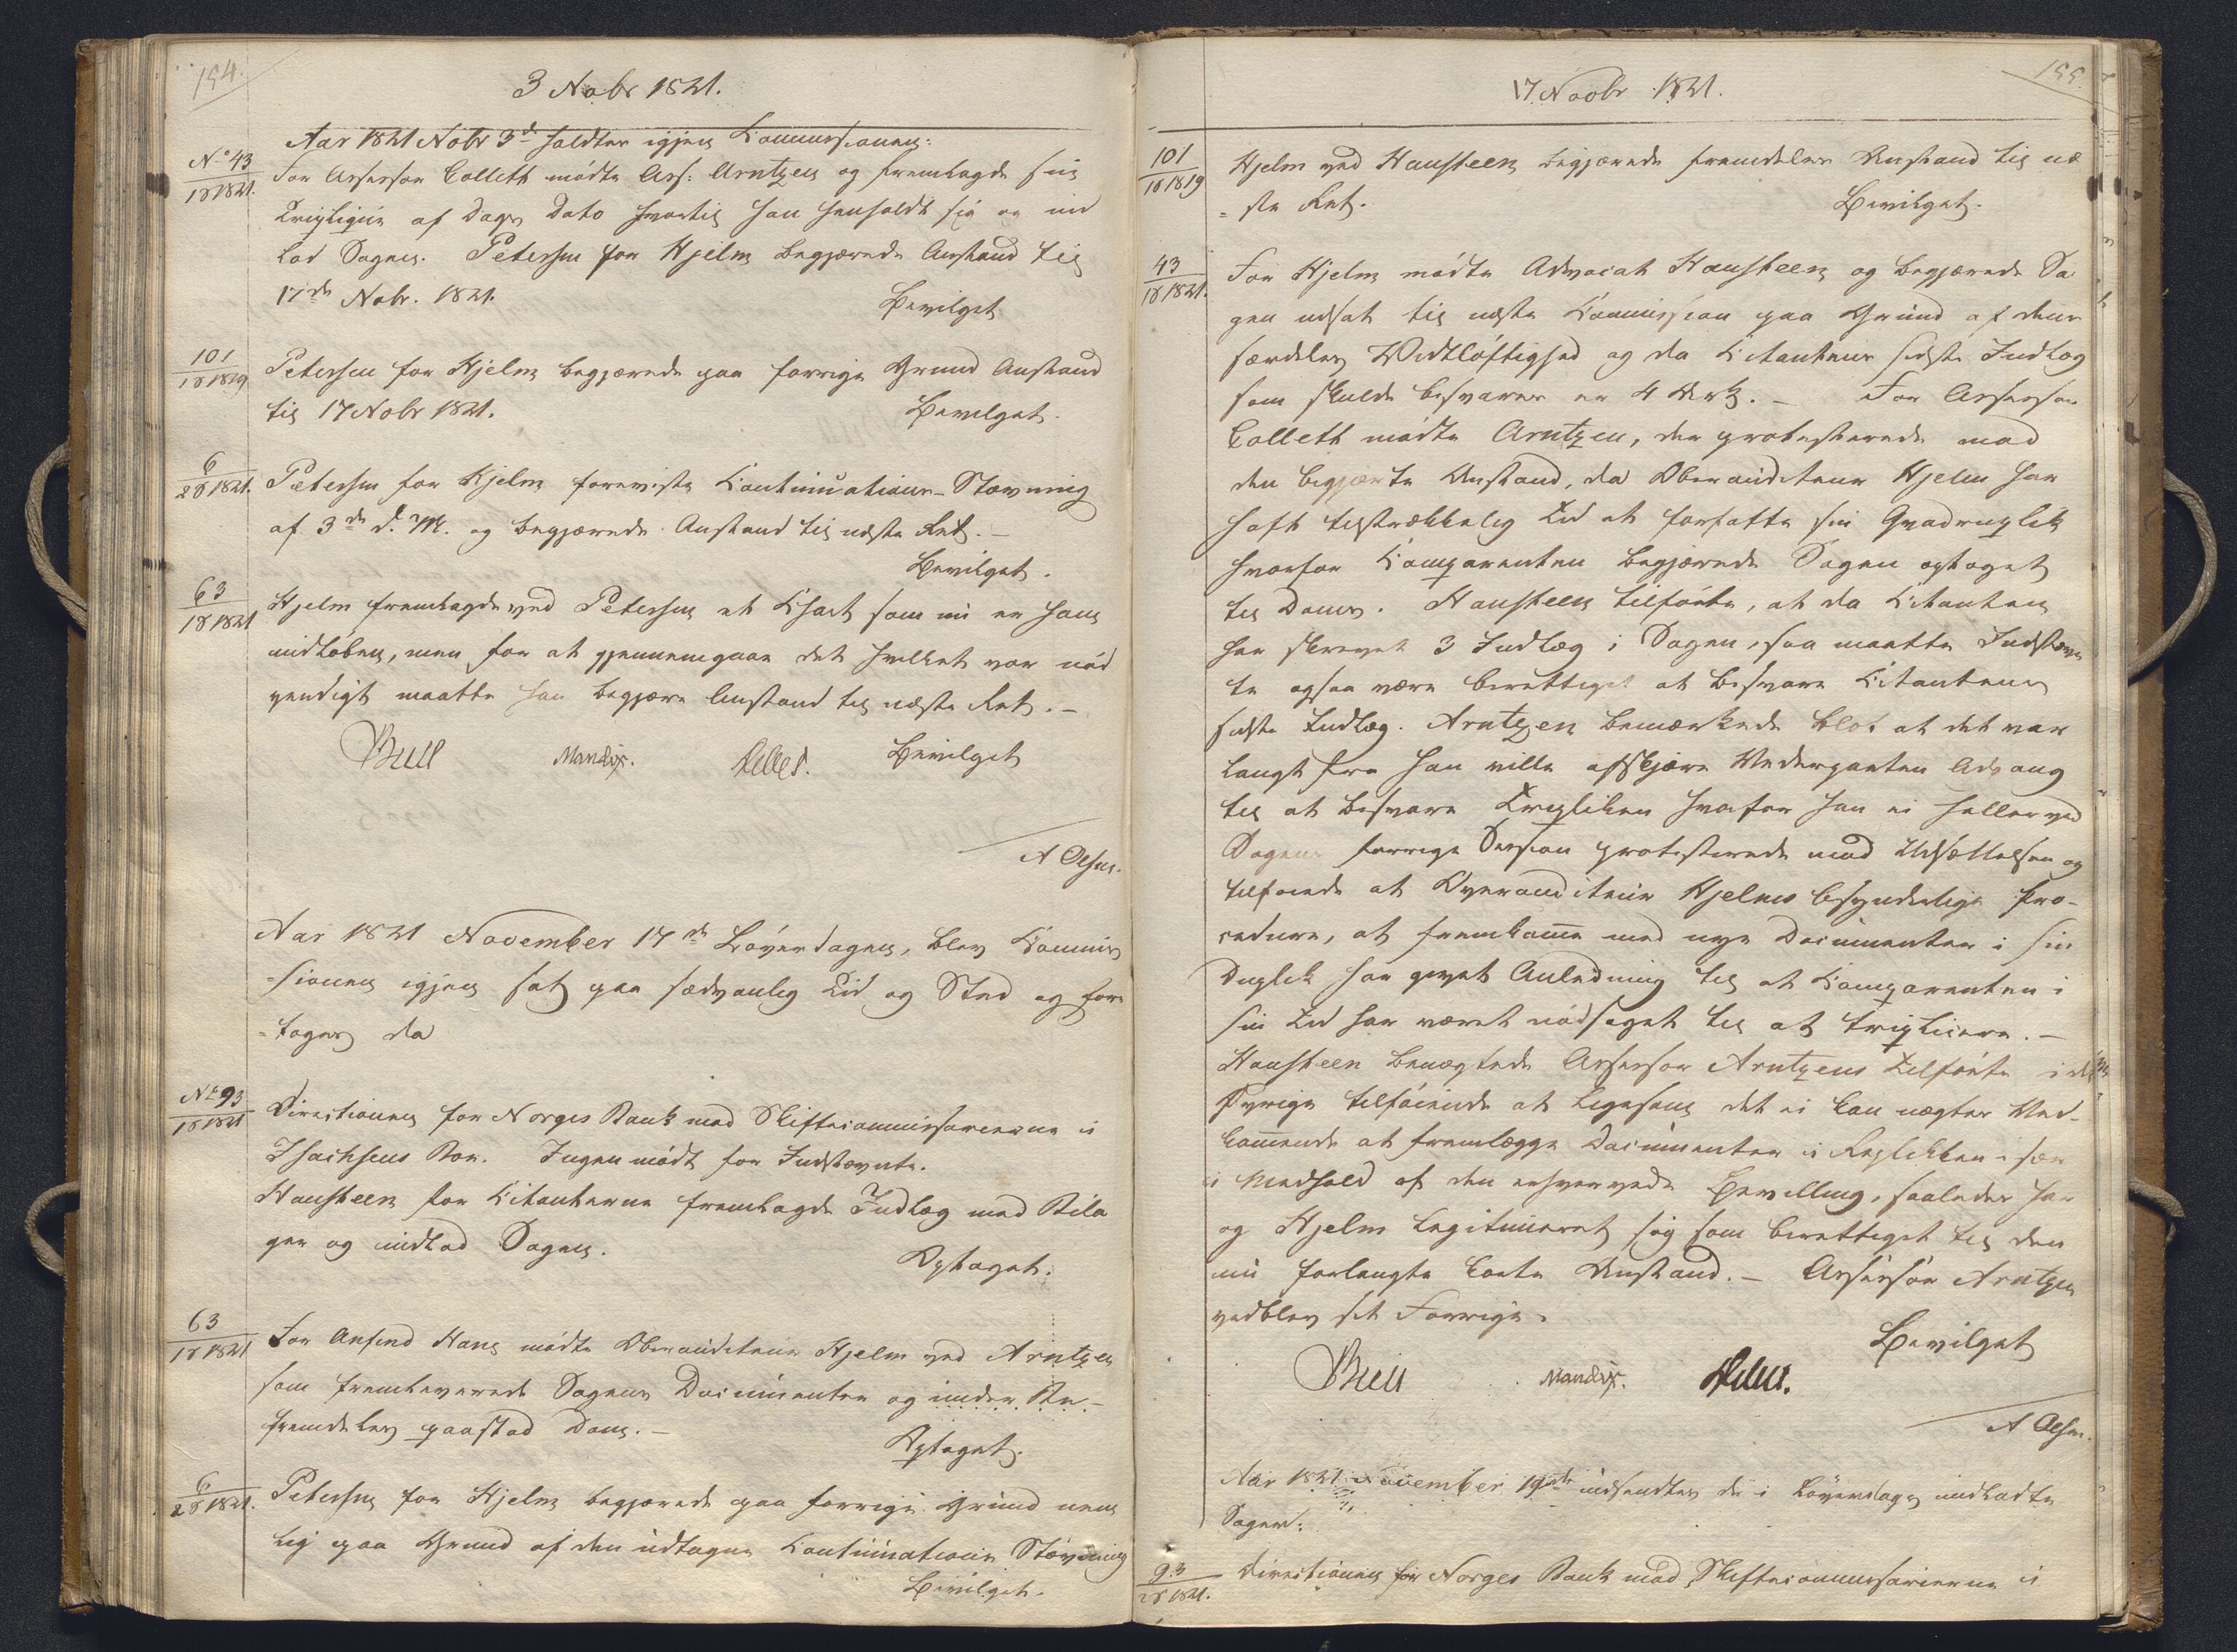 194.
3 Nobr 1821.
Aar 1821 Nobr 3de holdtes igjen Commissionen:
No 43
18 1821.
For Assessor Collett mödte Ass: Arntzen og fremlagde sin
Triplique af Dags Dato hvortil han henholdt sig og ind
lod Sagen. Petersen for Hjelm begjærede Anstand til
17de Nobr. 1821.
Bevilget
101
18 1819
Petersen for Hjelm begjærede paa forrige Grund Anstand
til 17 Nobr 1821.
Bevilget.
6
28 1821.
Petersen for Hjelm foreviste Continuations-Stævning
af 3de d. M. og begjærede Anstand til næste Ret. –
Bevilget.
63
18 1821
Hjelm fremlagde ved Petersen et som nu er ham
indlöben, men for at gjennemgaae det hvilket var nöd
vendigt maatte han begjære Anstand til næste Ret. –
Bevilget
Bull Mandix.
A Olsen.
Aar 1821 November 17de Löverdagen, blev Commis
=sionen igjen sat paa sædvanlig Tid og Sted og fore
=toges da
No 93
18 1821
Directionen for Norges Bank mod Skiftecommissairerne i
Isachsens Boe. Ingen mödt for Indstævnte.
Hansteen for Citanterne fremlagde Indlæg med Bila
ger og indlod Sagen.
Optaget.
63
18 1821
For Hans mödte Oberauditeur Hjelm ved Arntzen
som fremleverede Sagens Documenter og under
paastod Dom. –
Optaget.
6
28 1821.
Petersen for Hjelm begjærede paa forrige Grund nem
lig paa Grund af den udtagne Continuations Stævning
Bevilget.
195.
17 Novbr 1821.
101
18 1819
Hjelm ved Hansteen begjærede fremdeles Anstand til næ
=ste Ret.
Bevilget.
43
18 1821.
For Hjelm mödte Advocat Hansteen og begjærede Sa
gen udsat til næste Commission paa Grund af dens
særdeles Vidtlöftighed og da Citantens sidste Indlæg
som skulde besvares er 4 Ark. – For Assessor
Collett mödte Arntzen, der protesterede mod
den begjærte Anstand, da Oberauditeur Hjelm har
haft tilstrækkelig Tid at forfatte sin Quadruplik
hvorfor Comparenten begjærede Sagen optaget
til Doms. Hansteen tilföiede, at da Citanten
har skrevet 3 Indlæg i Sagen, saa maatte Indstævn
te ogsaa være berettiget at besvare Citantens
sidste Indlæg. Arntzen bemærkede blot at det var
langt fra han vilde afskjære Modeparten Adgang
til at besvare Tripliken hvorfor han ei heller ved
Sagens forrige Session protesterede mod Udsættelsen og
tilföiede at Overauditeur Hjelms besynderlige Pro-
cedure, at fremkomme med nye Documenter i sin
Duplik har givet Anledning til at Comparenten i
sin Tid har været nödsaget til at triplicere. –
Hansteen benægtede Assessor Arntzens Tilförte i det
Övrige tilföiende at ligesom det ei kan nægtes Ved-
kommende at fremlægge Documenter i Replikken især
i Medhold af den erhvervede Bevilling, saaledes har
og Hjelm legitimeret sig som berettiget til den
nu forlangte korte Anstand. – Assessor Arntzen
vedblev sit Forrige.
Bevilget
Bull Mandix.
A Olsen.
Aar 1821 November 19de udsendtes de i Löverdags indladte
Sager:
93
28 1821.
Directionen for Norges Bank mod Skiftecommissairerne i